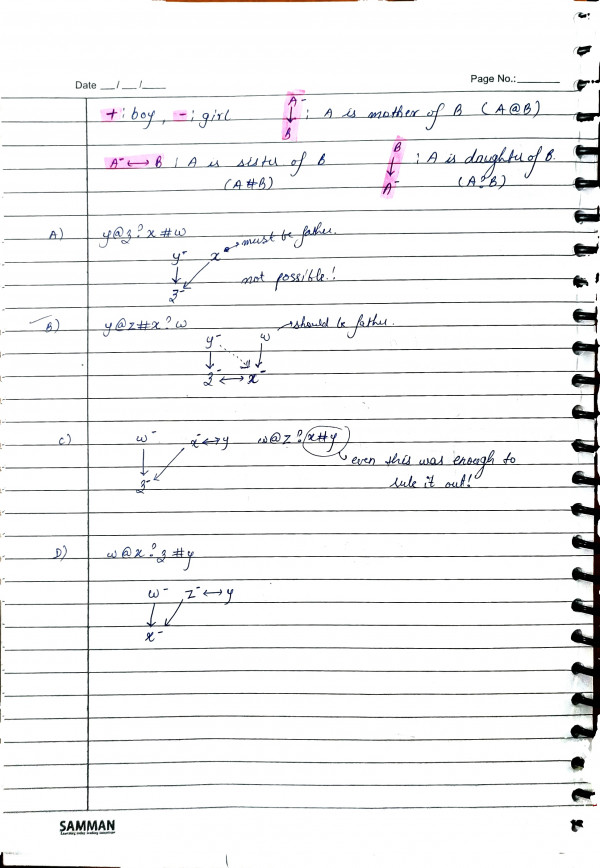 Date __/__/__
Page No.:______
+ : boy, - : girl
A- ↓ B : A is mother of B (A@B)
A- ↔ B : A is sister of B
(A#B)
B ↓ A- : A is daughter of B.
(A?B)
A) y@z?x#w
y- x → must be father.
not possible!
z-
B) y@z#x?w
y- w → should be father.
z- ↔ x-
C) w- x- ↔ y w@z?x#y
z-
even this was enough to
rule it out!
D) w@x?z#y
w- z- ↔ y
x-
SAMMAN